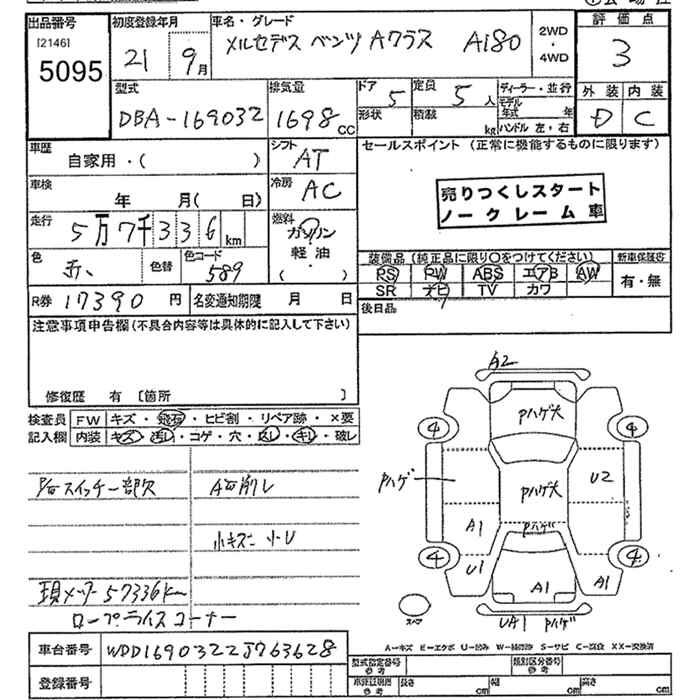 出品番号 初度登録年月 車名・グレード 2WD・4WD 評価点
[2146] 5095 21 9月 メルセデス ベンツ Aクラス A180 3
型式 排気量 ドア 5 定員 5人 ディーラー・並行 外装 内装
DBA-169032 1698CC 形状 積載 kg モデル年式 年 ハンドル 左・右 D C
車歴 自家用・( ) シフト AT セールスポイント (正常に機能するものに限ります)
車検 年 月( 日) 冷房 AC
売りつくしスタート
ノークレーム車
走行 5万7千336km 燃料 ガソリン 軽油 ( )
色 赤、 色替 色コード 589
装備品(純正品に限り〇をつけてください) 新車保証書
PS PW ABS エアB AW 有・無
SR ナビ TV カワ
R券 17390円 名変通知期限 月 日 後日品
注意事項申告欄(不具合内容等は具体的に記入して下さい)
修復歴 有 [箇所 ]
検査員 FW キズ・飛石・ヒビ割・リペア跡・×要
記入欄 内装 キズ・汚レ・コゲ・穴・
破レ
A2
Pハゲ大
4 4
Pハゲ Pハゲ大 U2
A1 Pハゲ
4 U1 4
A1 A1
スペア UA1 Pハゲ
スイッチ一部欠
小キズ 小U
現メーター57336km
ロープライスコーナー
A-キズ E-エクボ U-凹み W-補修跡 S-サビ C-腐食 XX-交換済
車台番号 WDD1690322J763628
型式指定番号 参考 類別区分番号 参考
登録番号
車検証明書 参考 長さ cm 幅 cm 高さ cm